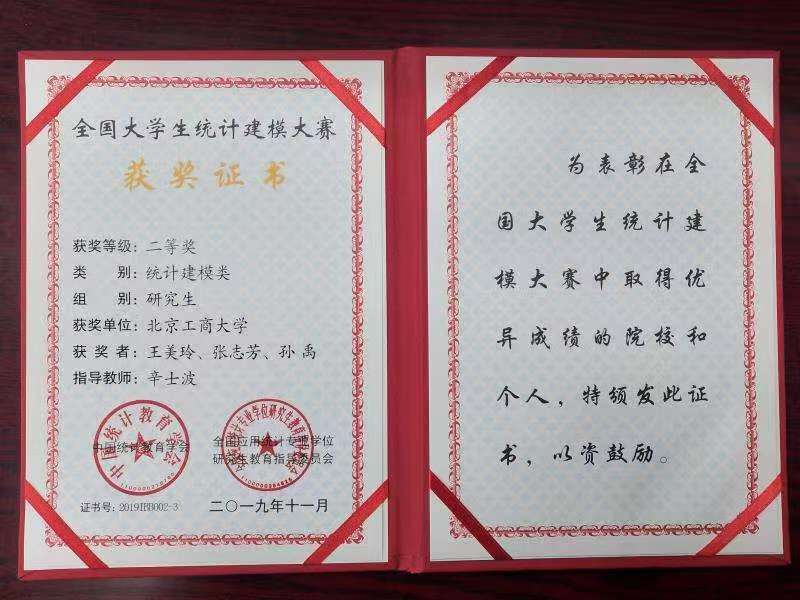 全国大学生统计建模大赛
获奖证书
获奖等级：二等奖
类　别：统计建模类
组　别：研究生
获奖单位：北京工商大学
获 奖 者：王美玲、张志芳、孙 禹
指导教师：辛士波
中国统计教育学会
全国应用统计专业学位
研究生教育指导委员会
证书号：2019YBB002-3
二〇一九年十一月
为表彰在全
国大学生统计建
模大赛中取得优
异成绩的院校和
个人，特颁发此证
书，以资鼓励。